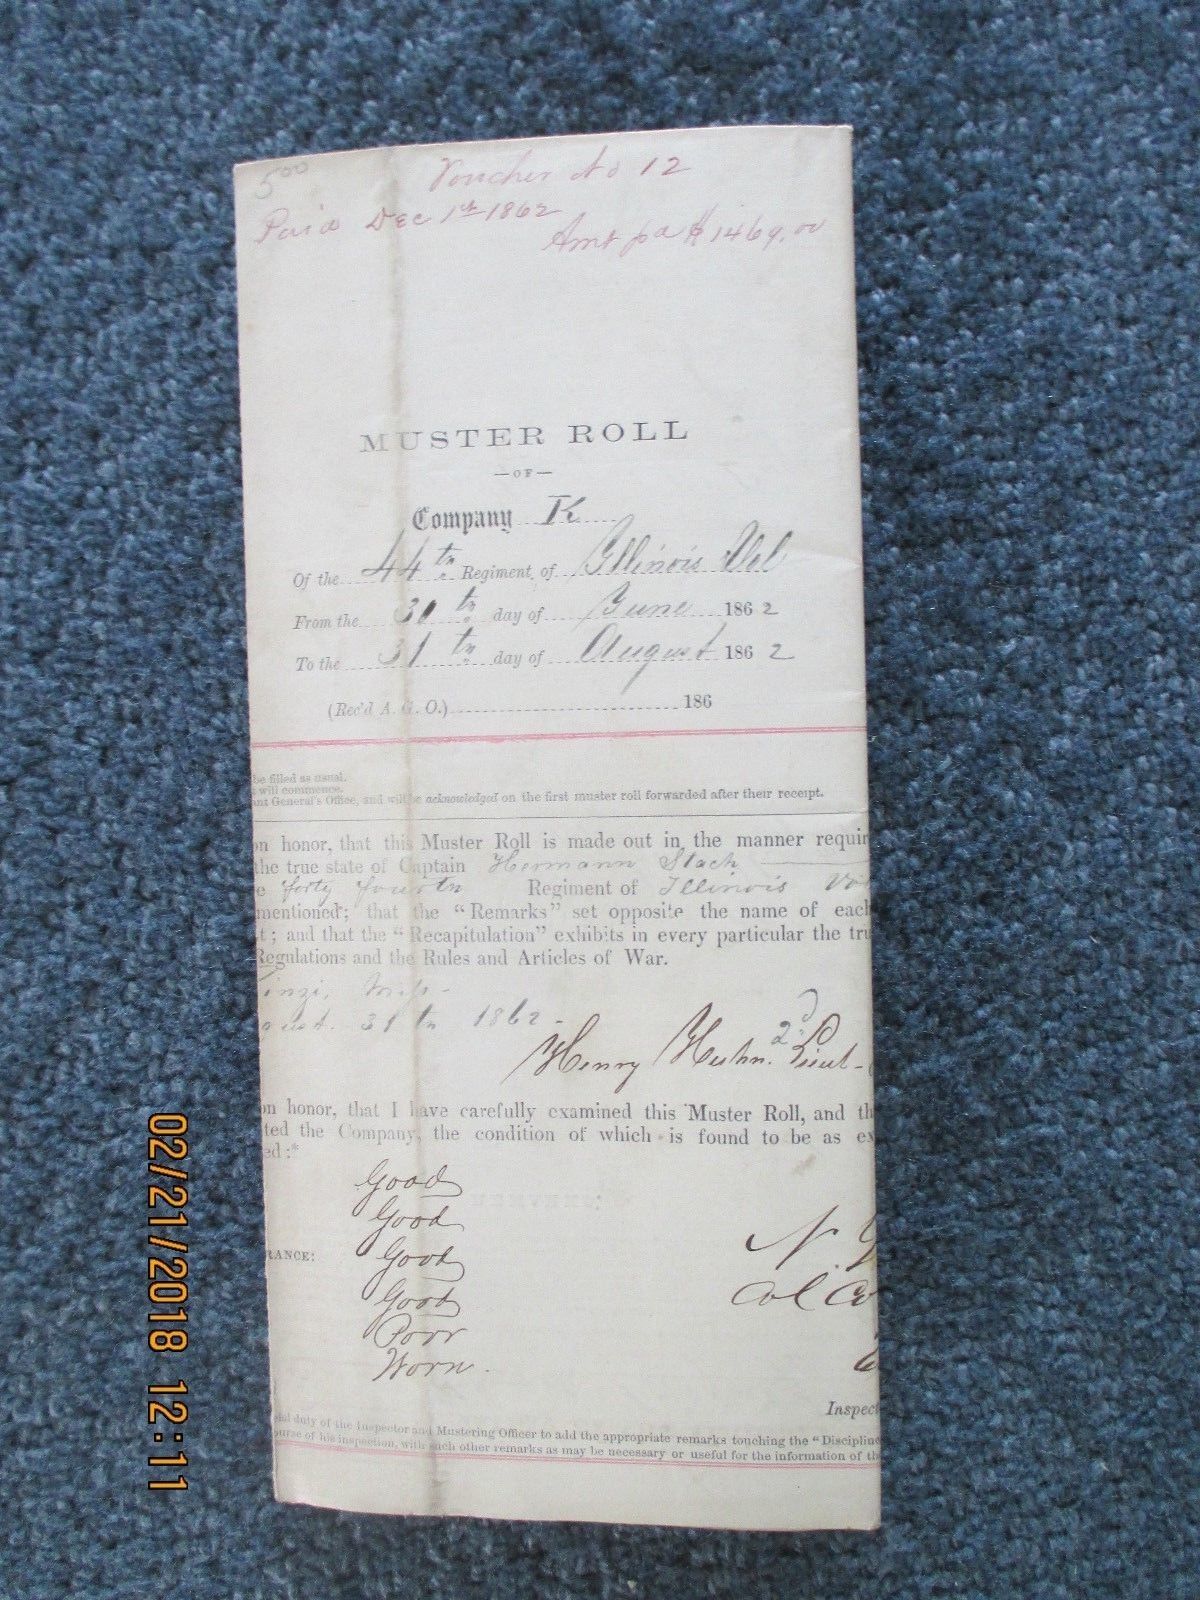 5.00
Voucher No 12
Paid Dec 1st 1862
Amt pd $1469.00
MUSTER ROLL
—OF—
Company K
Of the 44th Regiment of Illinois Vol
From the 30th day of June 1862
To the 31th day of August 1862
(Rec'd A. G. O.) 186
be filled as usual.
will commence.
ant General's Office, and will be acknowledged on the first muster roll forwarded after their receipt.
on honor, that this Muster Roll is made out in the manner requir
the true state of Captain Hermann Stach
e forty fourth Regiment of Illinois Vol
mentioned; that the "Remarks" set opposite the name of each
t; and that the "Recapitulation" exhibits in every particular the tru
Regulations and the Rules and Articles of War.
inzi, Miss-
oust. 31th 1862-
Henry Huhn. 2d Lieut-
on honor, that I have carefully examined this Muster Roll, and th
ted the Company, the condition of which is found to be as ex
ed:*
Good
Good
RANCE: Good
Good
Poor
Worn.
N.
Col Co
Inspec
ful duty of the Inspector and Mustering Officer to add the appropriate remarks touching the "Discipline
ourse of his inspection, with such other remarks as may be necessary or useful for the information of th
02/21/2018 12:11